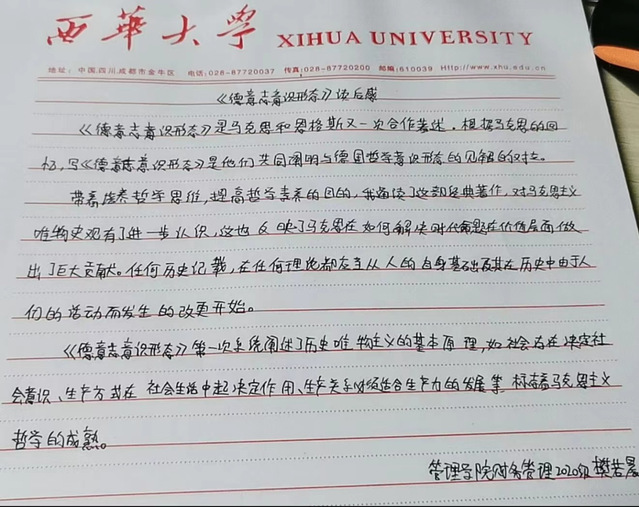 西華大学 XIHUA UNIVERSITY
地址：中国四川成都市金牛区 电话:028-87720037 传真:028-87720200 邮编:610039 Http://www.xhu.edu.cn
《德意志意识形态》读后感
《德意志意识形态》是马克思和恩格斯又一次合作著述．根据马克思的回
忆,写《德意志意识形态》是他们共同阐明与德国哲学意识形态的见解的对立。
带着培养哲学思维,提高哲学素养的目的,我通读了这部经典著作,对马克思主义
唯物史观有了进一步认识,这也反映了马克思在如何解决时代命题在价值层面做
出了巨大贡献。任何历史记载,在任何理论都应当从人的自身基础及其在历史中由于人
们的活动而发生的改更开始。
《德意志意识形态》第一次系统阐述了历史唯物主义的基本原理,如社会存在决定社
会意识、生产方式在社会生活中起决定作用、生产关系必须适合生产力的发展等.标志着马克思主义
哲学的成熟。
管理学院财务管理2020级樊若晨